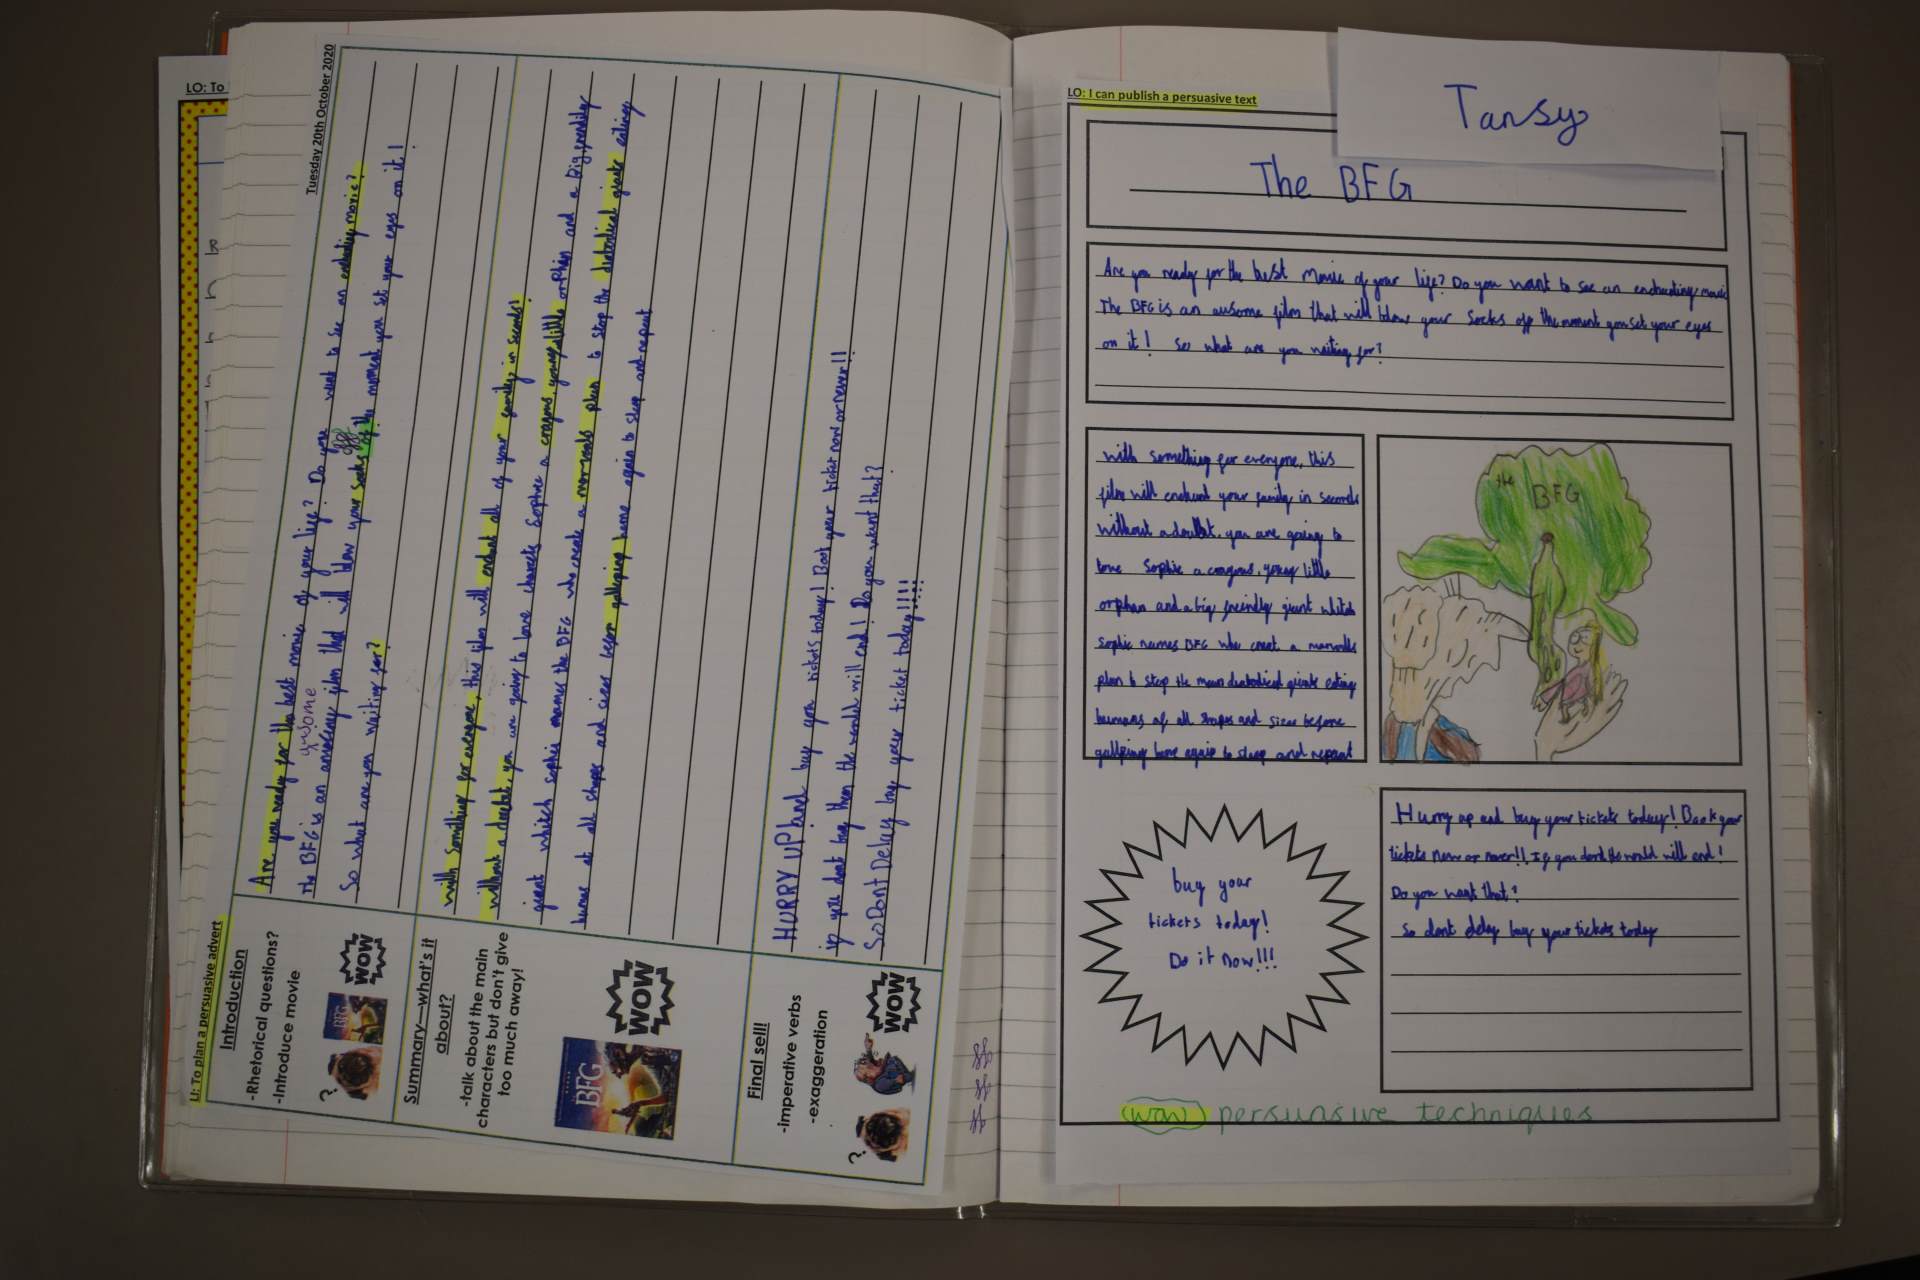 LO: To
Tuesday 20th October 2020
LI: To plan a persuasive advert
Introduction
-Rhetorical questions?
-Introduce movie
?
BFG
WOW
Are you ready for the best movie of your life? Do you want to see an enchating movie?
awsome
The BFG is an amazing film that will blow your socks off the moment you set your eyes on it!
So what are you waiting for?
Summary—what's it
about?
-talk about the main
characters but don't give
too much away!
BFG
WOW
with something for everyone, this film will enchant all of your family in seconds!
without a doubt, you are going to love charects Sophie a couragous, young little orphan and a Big friendly
giant which sophie names the BFG who create a plan to stop the diabolical giants eating
humas at all shapes and sizes befor galloping home again to sleep and repeat
Final sell!
-imperative verbs
-exaggeration
?
WOW
HURRY UP and buy you tickets today! Book your ticket now or never!!
if you dont buy them the world will end! Do you want that?
So Dont Delay buy your ticket today!!!!
LO: I can publish a persuasive text
Tansy
The BFG
Are you ready for the best movie of your life? Do you want to see an enchating movie
The BFG is an awsome film that will blow your socks off the moment you set your eyes
on it! So what are you waiting for?
with something for everyone, this
film will enchant your family in seconds
without a doubt, you are going to
love Sophie a couragous, young little
orphan and a big freindly giant which
sophie names BFG who creat a
plan to stop the mean diabolical giants eating
humans of all shapes and sizes before
galloping home again to sleep and repeat
the
BFG
buy your
tickets today!
Do it now!!!
Hurry up and buy your tickets today! Book your
tickets now or never!! If you dont the world will end!
Do you want that?
So dont delay buy your tickets today
wow persuasive techniques